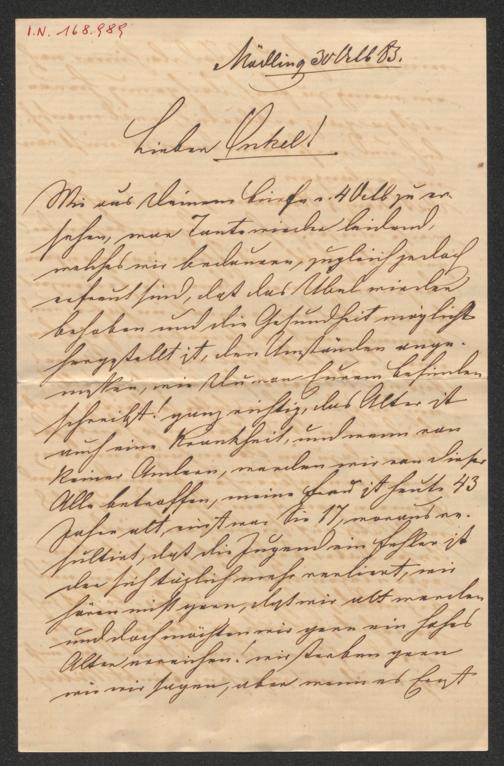 I.N. 168.989
Mödling 30 Okt 83.
Lieber Onkel!
Wie aus Deinem Briefe v. 4 Okt zu er
sehen, war Tante wieder leidend,
welches wir bedauern, zugleich jedoch
erfreut sind, daß das Übel wieder
behoben und die Gesundheit möglichst
hergestellt ist, den Umständen ange-
messen, wie Du von Eurem Befinden
schreibst! ganz richtig, das Alter ist
auch eine Krankheit, und wenn von
keiner Andern, werden wir von dieser
Alle betroffen, meine Frau ist heute 43
Jahre alt, einst war Sie 17, woraus re-
sultirt, daß die Jugend ein Fehler ist
der sich täglich mehr verliert, wir
hören nicht gern, daß wir alt werden
und doch möchten wir gern ein hohes
Alter erreichen! wir sterben gern
wie wir sagen, aber wenn es Ernst